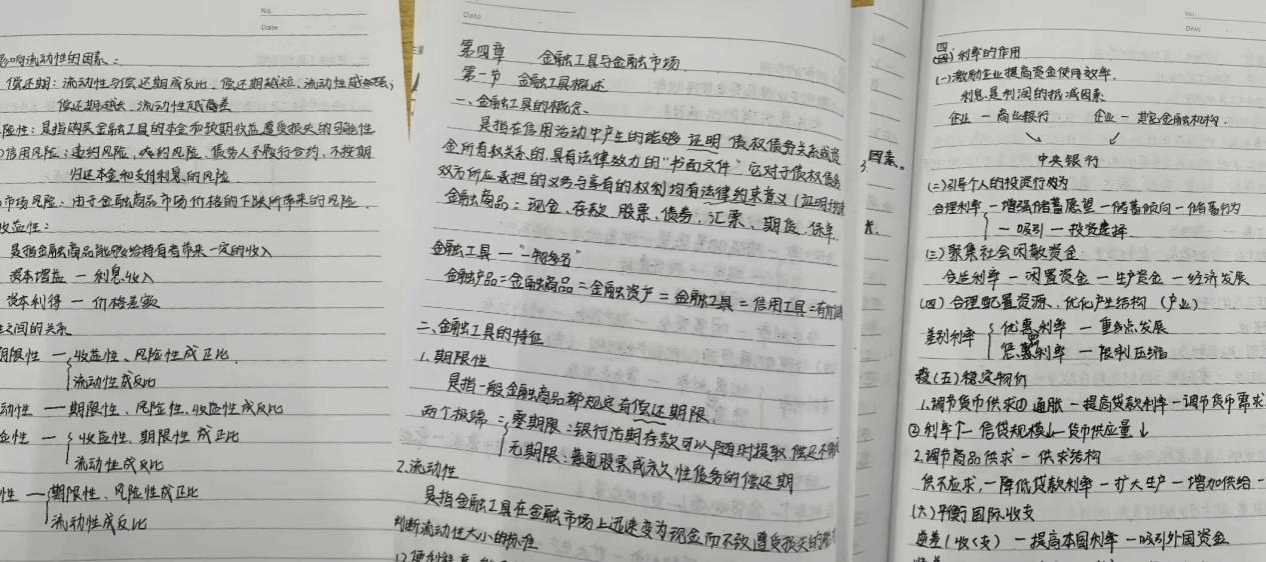 影响流动性的因素:
偿还期:流动性与偿还期成反比,偿还期越短,流动性越强;
偿还期越长,流动性越差
险性:是指购买金融工具的本金和预期收益遭受损失的可能性
信用风险:违约风险,债务人不履行合约,不按期
归还本金和支付利息的风险
市场风险:由于金融商品市场价格的下跌所带来的风险.
收益性:
是指金融商品能够给持有者带来一定的收入
资本增益 — 利息收入
资本利得 — 价格差额
之间的关系
期限性 — 收益性、风险性成正比.
流动性成反比
动性 — 期限性、风险性、收益性成反比
收益性、期限性成正比
流动性成反比
性 — 期限性、风险性成正比
流动性成反比
No.
Date
Date
第四章 金融工具与金融市场
第一节 金融工具概述
一、金融工具的概念.
是指在信用活动中产生的能够证明债权债务关系或资
金所有权关系的,具有法律效力的“书面文件”它对于债权债务
双方所应承担的义务与享有的权利均有法律约束意义(证明
金融商品:现金、存款、股票、债券、汇票、期货、保单
金融工具 — “一物多名”
金融产品=金融商品=金融资产=金融工具=信用工具=有价
二、金融工具的特征
1.期限性
是指一般金融商品都规定有偿还期限.
两个极端: 零期限:银行活期存款可以随时提取
无期限:普通股票或永久性债务的偿还期
2.流动性
是指金融工具在金融市场上迅速变为现金而不致遭受损失的
判断流动性大小的标准
因素。
No.
Date
四
(四)利率的作用
(一)激励企业提高资金使用效率.
利息是利润的抵减因素
企业 — 商业银行 企业 — 其它金融机构.
中央银行
(二)引导个人的投资行为
合理利率 — 增强储蓄愿望 — 储蓄倾向 — 储蓄行为
— 吸引 — 投资选择
(三)聚集社会闲散资金
合适利率 — 闲置资金 — 生产资金 — 经济发展
(四)合理配置资源,优化产生结构(产业)
差别利率 优惠利率 — 重点发展
惩罚利率 — 限制压缩
(五)稳定物价
1.调节货币供求① 通胀 — 提高贷款利率 — 调节货币需求
②利率↑ — 信贷规模↓ — 货币供应量↓
2.调节商品供求 — 供求结构
供不应求, — 降低贷款利率 — 扩大生产 — 增加供给 —
(六)平衡国际收支
逆差(收<支) — 提高本国利率 — 吸引外国资金